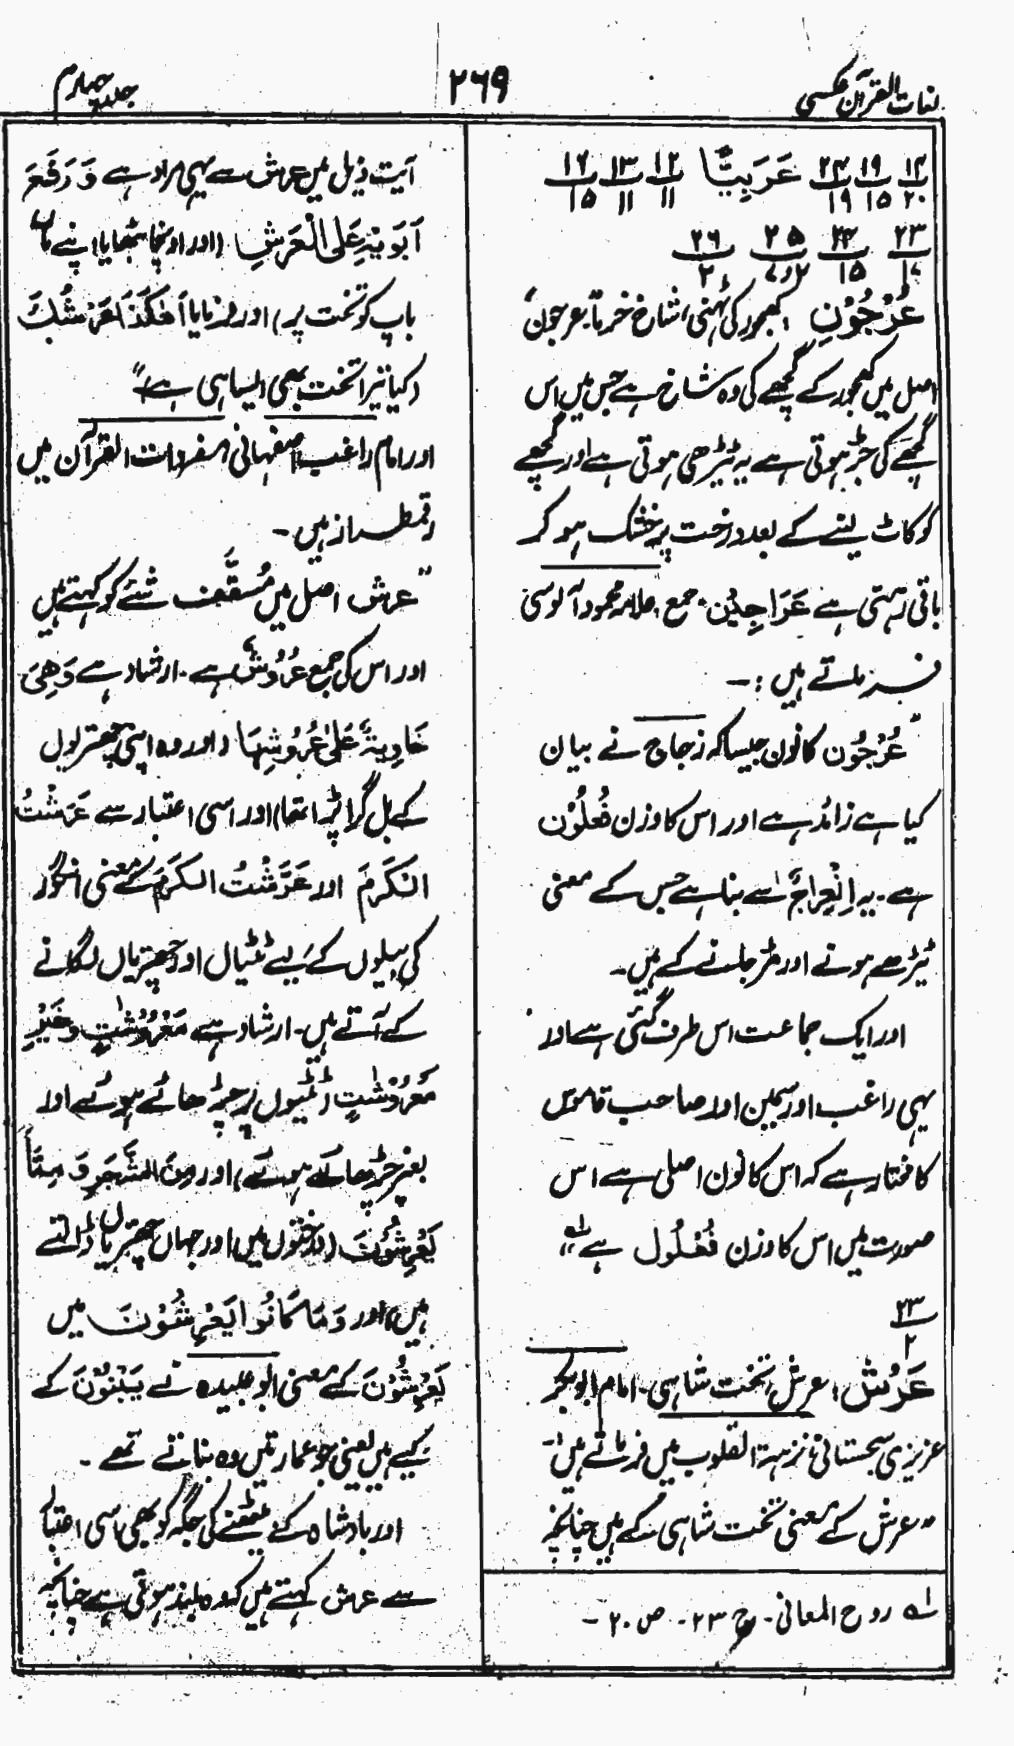 لغات القرآن عکسی
۲۶۹
جلد چہارم
عَرَبِیًّا ۱۲/۱۱ ۱۳/۱۱ ۱۶/۱۵
۱۴/۲۰ ۱۹/۱۵ ۲۴/۱۹
۲۳/۱۷ ۲۴/۱۵ ۲۵/۲و۷ ۲۶/۲
عُرْجُوْنِ: کھجور کی ٹہنی، شاخ خرما۔ عرجون
اصل میں کھجور کے گچھے کی وہ شاخ ہے جس میں اس
گچھے کی جڑ ہوتی ہے یہ ٹیڑھی ہوتی ہے اور گچھے
کو کاٹ لینے کے بعد درخت پر خشک ہو کر
باقی رہتی ہے عَرَاجِیْن۔ جمع، علامہ محمود آلوسی
فرماتے ہیں :۔
”عُرْجُون کا نون جیسا کہ زجاج نے بیان
کیا ہے زائد ہے اور اس کا وزن فُعْلُوْن
ہے۔ یہ اِنْعِرَاجٌ سے بنا ہے جس کے معنی
ٹیڑھے ہونے اور مڑ جانے کے ہیں۔
اور ایک جماعت اس طرف گئی ہے اور
یہی راغب اور سمین اور صاحب قاموس
کا مختار ہے کہ اس کا نون اصلی ہے اس
صورت میں اس کا وزن فُعْلُول ہے لہ“
۲۳/۲
عَرْش: عرش، تخت شاہی۔ امام ابو بکر
عزیزی سجستانی نزہۃ القلوب میں فرماتے ہیں:۔
”عرش کے معنی تخت شاہی کے ہیں چنانچہ
لہ روح المعانی۔ ج ۲۳۔ ص ۲۰۔
آیت ذیل میں عرش سے یہی مراد ہے وَرَفَعَ
اَبَوَیْہِ عَلَی الْعَرْشِ (اور اونچا بٹھایا اپنے ماں
باپ کو تخت پر) اور فرمایا اَھٰکَذَا عَرْشُکِ
(کیا تیرا تخت بھی ایسا ہی ہے)“
اور امام راغب اصفہانی مفردات القرآن میں
رقمطراز ہیں۔
”عرش اصل میں مُسَقَّف شئے کو کہتے ہیں
اور اس کی جمع عُرُوْشٌ ہے۔ ارشاد ہے وَھِیَ
خَاوِیَۃٌ عَلٰی عُرُوْشِہَا (اور وہ اپنی چھتریوں
کے بل گرا پڑا تھا) اور اسی اعتبار سے عَرَشْتُ
الْکَرْمَ اور عَرَّشْتُ الْکَرْمَ کے معنی انگور
کی بیلوں کے لیے ٹٹیاں اور چھتریاں لگانے
کے آتے ہیں۔ ارشاد ہے مَعْرُوْشٰتٍ وَّغَیْرَ
مَعْرُوْشٰتٍ (ٹٹیوں پر چڑھائے ہوئے اور
بغیر چڑھائے ہوئے) اور وَمِنَ الشَّجَرِ وَ مِمَّا
یَعْرِشُوْنَ (درختوں میں اور جہاں چھتریاں ڈالتے
ہیں) اور وَمَا کَانُوْا یَعْرِشُوْنَ میں
یَعْرِشُوْنَ کے معنی ابو عبیدہ نے یَبْنُوْنَ کے
کیے ہیں یعنی جو عمارتیں وہ بناتے تھے۔
اور بادشاہ کے بیٹھنے کی جگہ کو بھی اسی اعتبار
سے عرش کہتے ہیں کہ وہ بلند ہوتی ہے چنانچہ